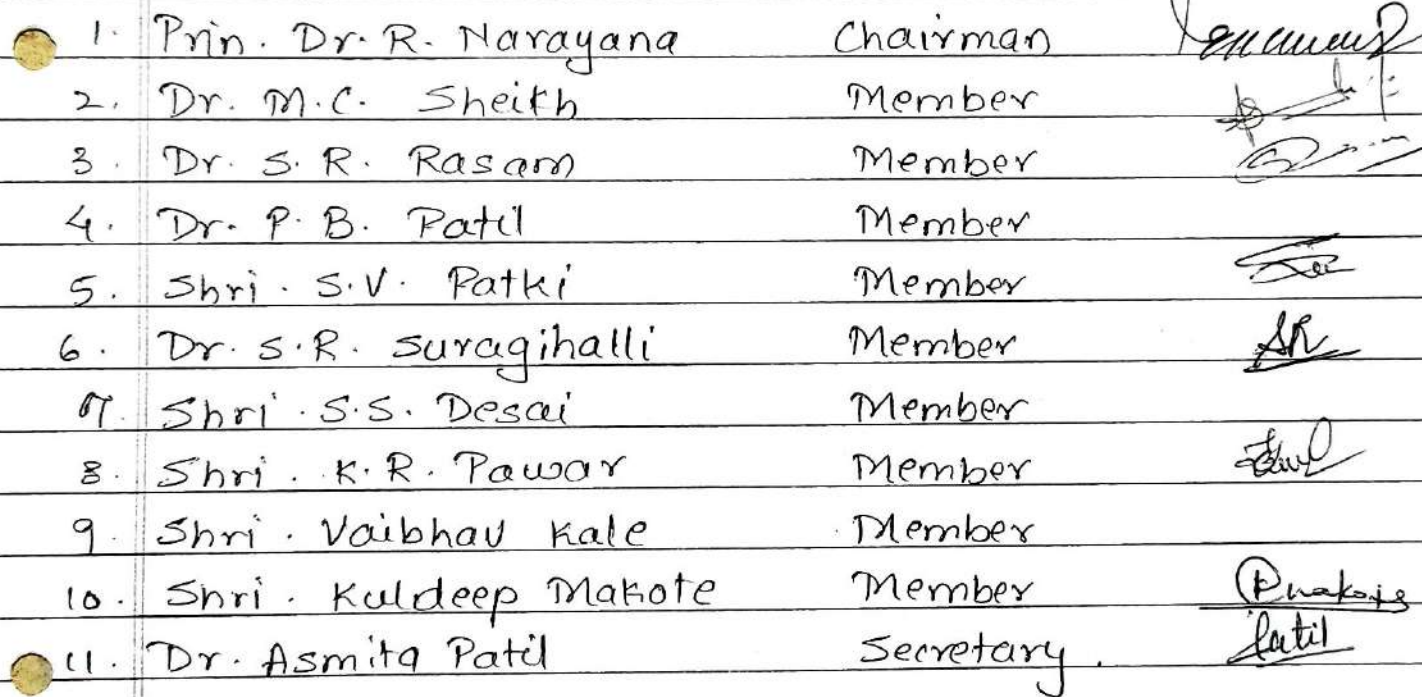 1. Prin. Dr. R. Narayana Chairman
2. Dr. M.C. Sheikh Member
3. Dr. S. R. Rasam Member
4. Dr. P. B. Patil Member
5. Shri. S.V. Patki Member
6. Dr. S.R. Suragihalli Member SR
7. Shri. S.S. Desai Member
8. Shri. K.R. Pawar Member
9. Shri. Vaibhav Kale Member
10. Shri. Kuldeep Makote Member
11. Dr. Asmita Patil Secretary. Patil